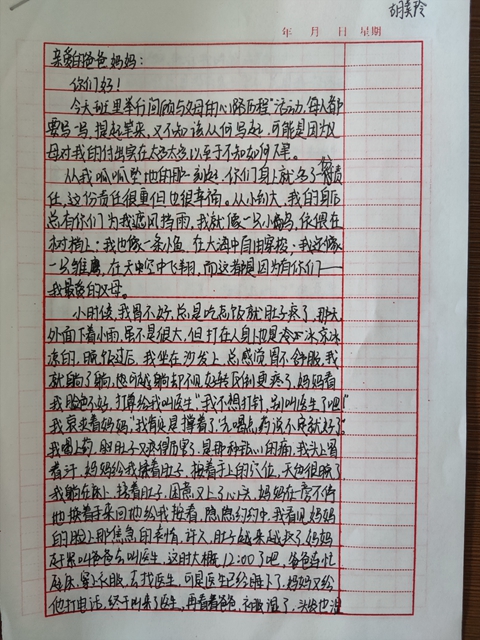 胡美玲
年 月 日 星期
亲爱的爸爸妈妈：
你们好！
今天班里举行"回顾与父母的心路历程"活动，每人都
要写一写，提起笔来，又不知该从何写起，可能是因为父
母对我的付出实在太多太多以至于不知如何下笔。
从我呱呱坠地的那一刻起，你们身上就多了一份责
任，这份责任很重但也很幸福。从小到大，我的身后
总有你们为我遮风挡雨，我就像一只小鸟，依偎在
树梢上；我也像一条小鱼，在大海中自由穿梭；我还像
一只雏鹰，在天空中飞翔，而这都是因为有你们——
我最爱的父母。
小时候，我胃不好总是吃忘饭就肚子疼了，那天
外面下着小雨，虽不是很大，但打在人身上也是冷冰冰凉
凉的，晚饭过后，我坐在沙发上总感觉胃不舒服，我
就躺了躺，您可越躺却不见好转反倒更疼了，妈妈看
我脸色不好，打算给我叫医生"我不想打针，别叫医生了吧！"
我哀求着妈妈"我肯定是撑着了，先喝点药说不定就好了"
我喝上药，但肚子又疼得厉害了，是那种钻心的痛，我头上冒
着汗，妈妈给我揉着肚子，按着手上的穴位，天也很晚了
我躺在床上，揉着肚子，困意又上了心头，妈妈在旁不停
地按着手来回地给我按着，隐隐约约中，我看见妈妈
的脸上那焦急的表情，许久，肚子越来越疼了，妈妈
赶紧叫爸爸去叫医生，这时大概12:00了吧，爸爸连忙
起床，穿上衣服，去找医生，可是医生已经睡下了，妈妈又给
他打电话，终于叫来了医生，再看看爸爸，衣服湿了，头发也湿